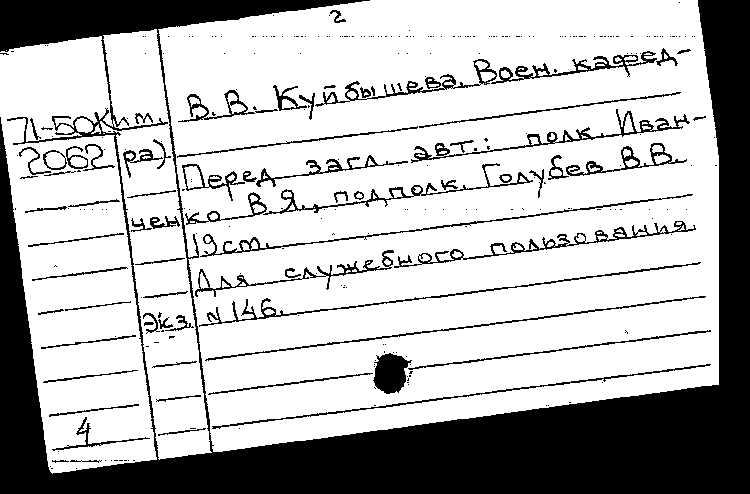 2
71-50К им. В.В. Куйбышева. Воен. кафед-
2062 ра)
Перед загл. авт.: полк. Иван-
ченко В.Я., подполк. Голубев В.В.
19 ст.
Для служебного пользования.
Экз. N 146.
4